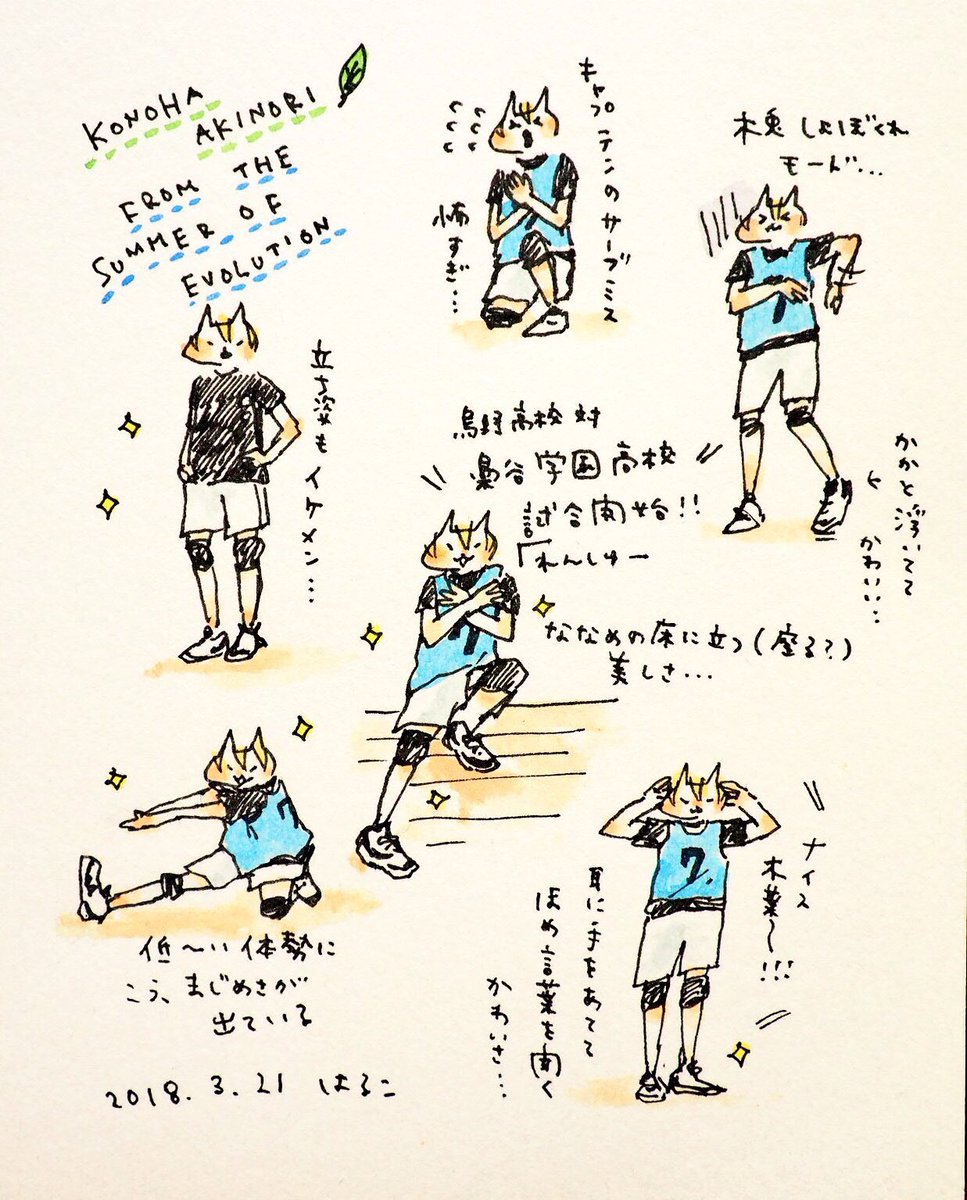 KONOHA
AKINORI
FROM THE
SUMMER OF
EVOLUTION
キャプテンのサーブミス
怖すぎ...
木兎しょぼくれ
モード...
立ち姿もイケメン...
烏野高校対
梟谷学園高校
試合開始!!
「れんしゅー
かかと浮いてて
かわいい...
ななめの床に立つ(座る?)
美しさ...
低〜い体勢に
こう、まじめさが
出ている
ナイス
木葉〜!!!
耳に手をあてて
ほめ言葉を聞く
かわいさ...
7
7
7
7
2018.3.21 はるこ